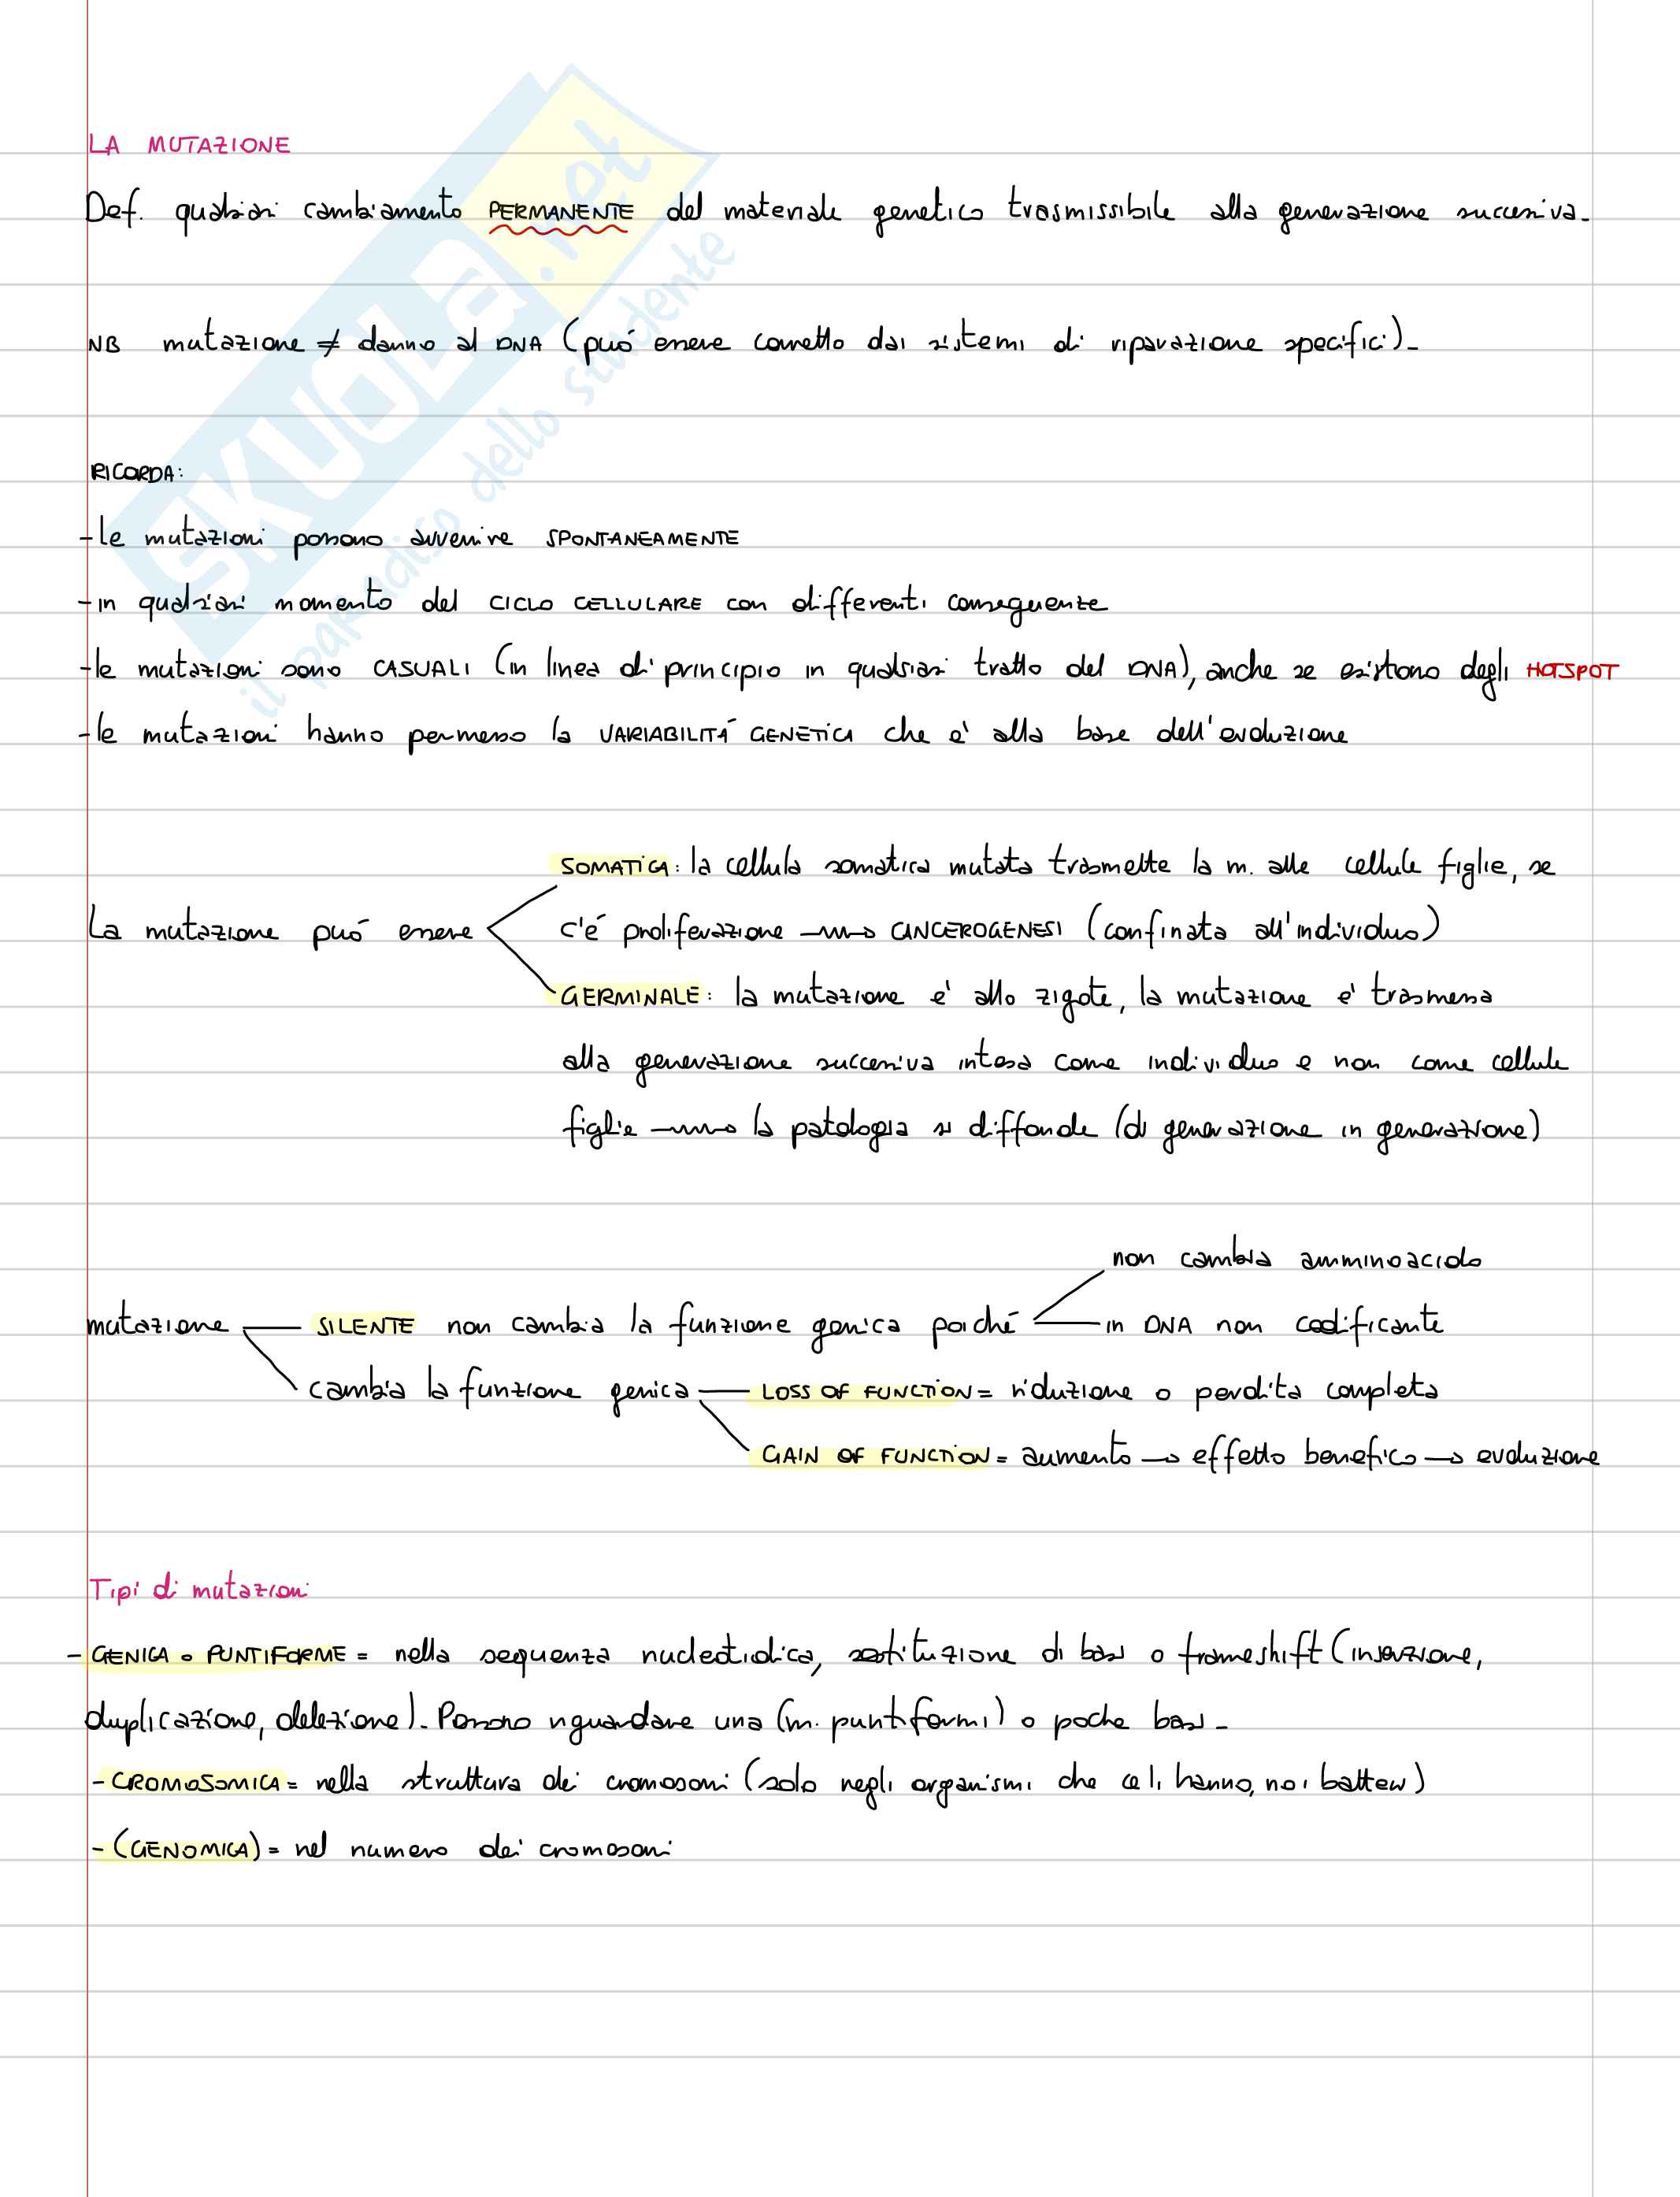 LA MUTAZIONE
Def. qualsiasi cambiamento PERMANENTE del materiale genetico trasmissibile alla generazione successiva.
NB mutazione ≠ danno al DNA (può essere corretto dai sistemi di riparazione specifici).
RICORDA:
- le mutazioni possono avvenire SPONTANEAMENTE
- in qualsiasi momento del CICLO CELLULARE con differenti conseguenze
- le mutazioni sono CASUALI (in linea di principio in qualsiasi tratto del DNA), anche se esistono degli HOTSPOT
- le mutazioni hanno permesso la VARIABILITÁ GENETICA che e' alla base dell'evoluzione
SOMATICA: la cellula somatica mutata trasmette la m. alle cellule figlie, se
La mutazione puó essere c'é proliferazione → CANCEROGENESI (confinata all'individuo)
GERMINALE: la mutazione e' allo zigote, la mutazione e' trasmessa
alla generazione successiva intesa come individuo e non come cellule
figlie → la patologia si diffonde (di generazione in generazione)
non cambia amminoacido
mutazione SILENTE non cambia la funzione genica poiché in DNA non codificante
cambia la funzione genica LOSS OF FUNCTION = riduzione o perdita completa
GAIN OF FUNCTION = aumento → effetto benefico → evoluzione
Tipi di mutazioni
- GENICA o PUNTIFORME = nella sequenza nucleotidica, sostituzione di basi o frameshift (inserzione,
duplicazione, delezione). Possono riguardare una (m. puntiformi) o poche basi.
- CROMOSOMICA = nella struttura dei cromosomi (solo negli organismi che ce li hanno, no i batteri)
- (GENOMICA) = nel numero dei cromosomi
SKUOLA.net
il paradiso dello studente